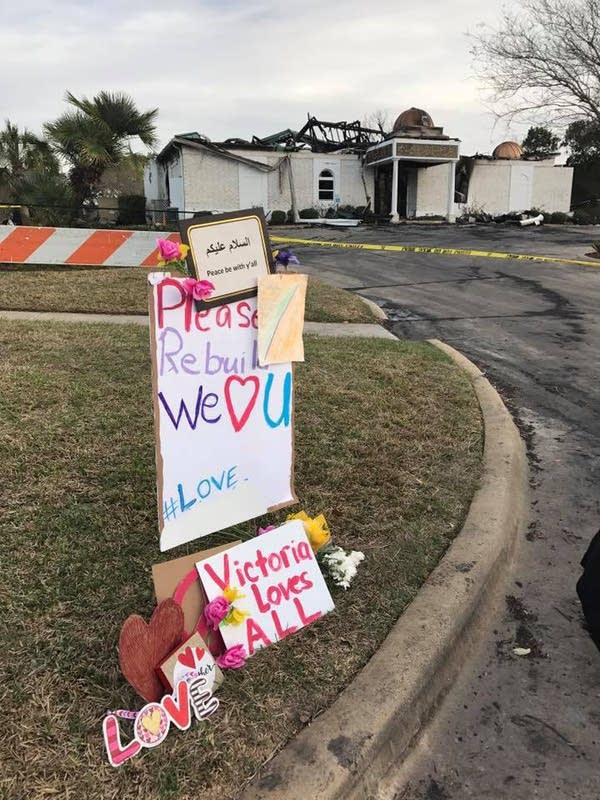 السلام عليكم
Peace be with y'all
Please
Rebuil
We ♡ U
#LOVE
Victoria
Loves
ALL
LOVE